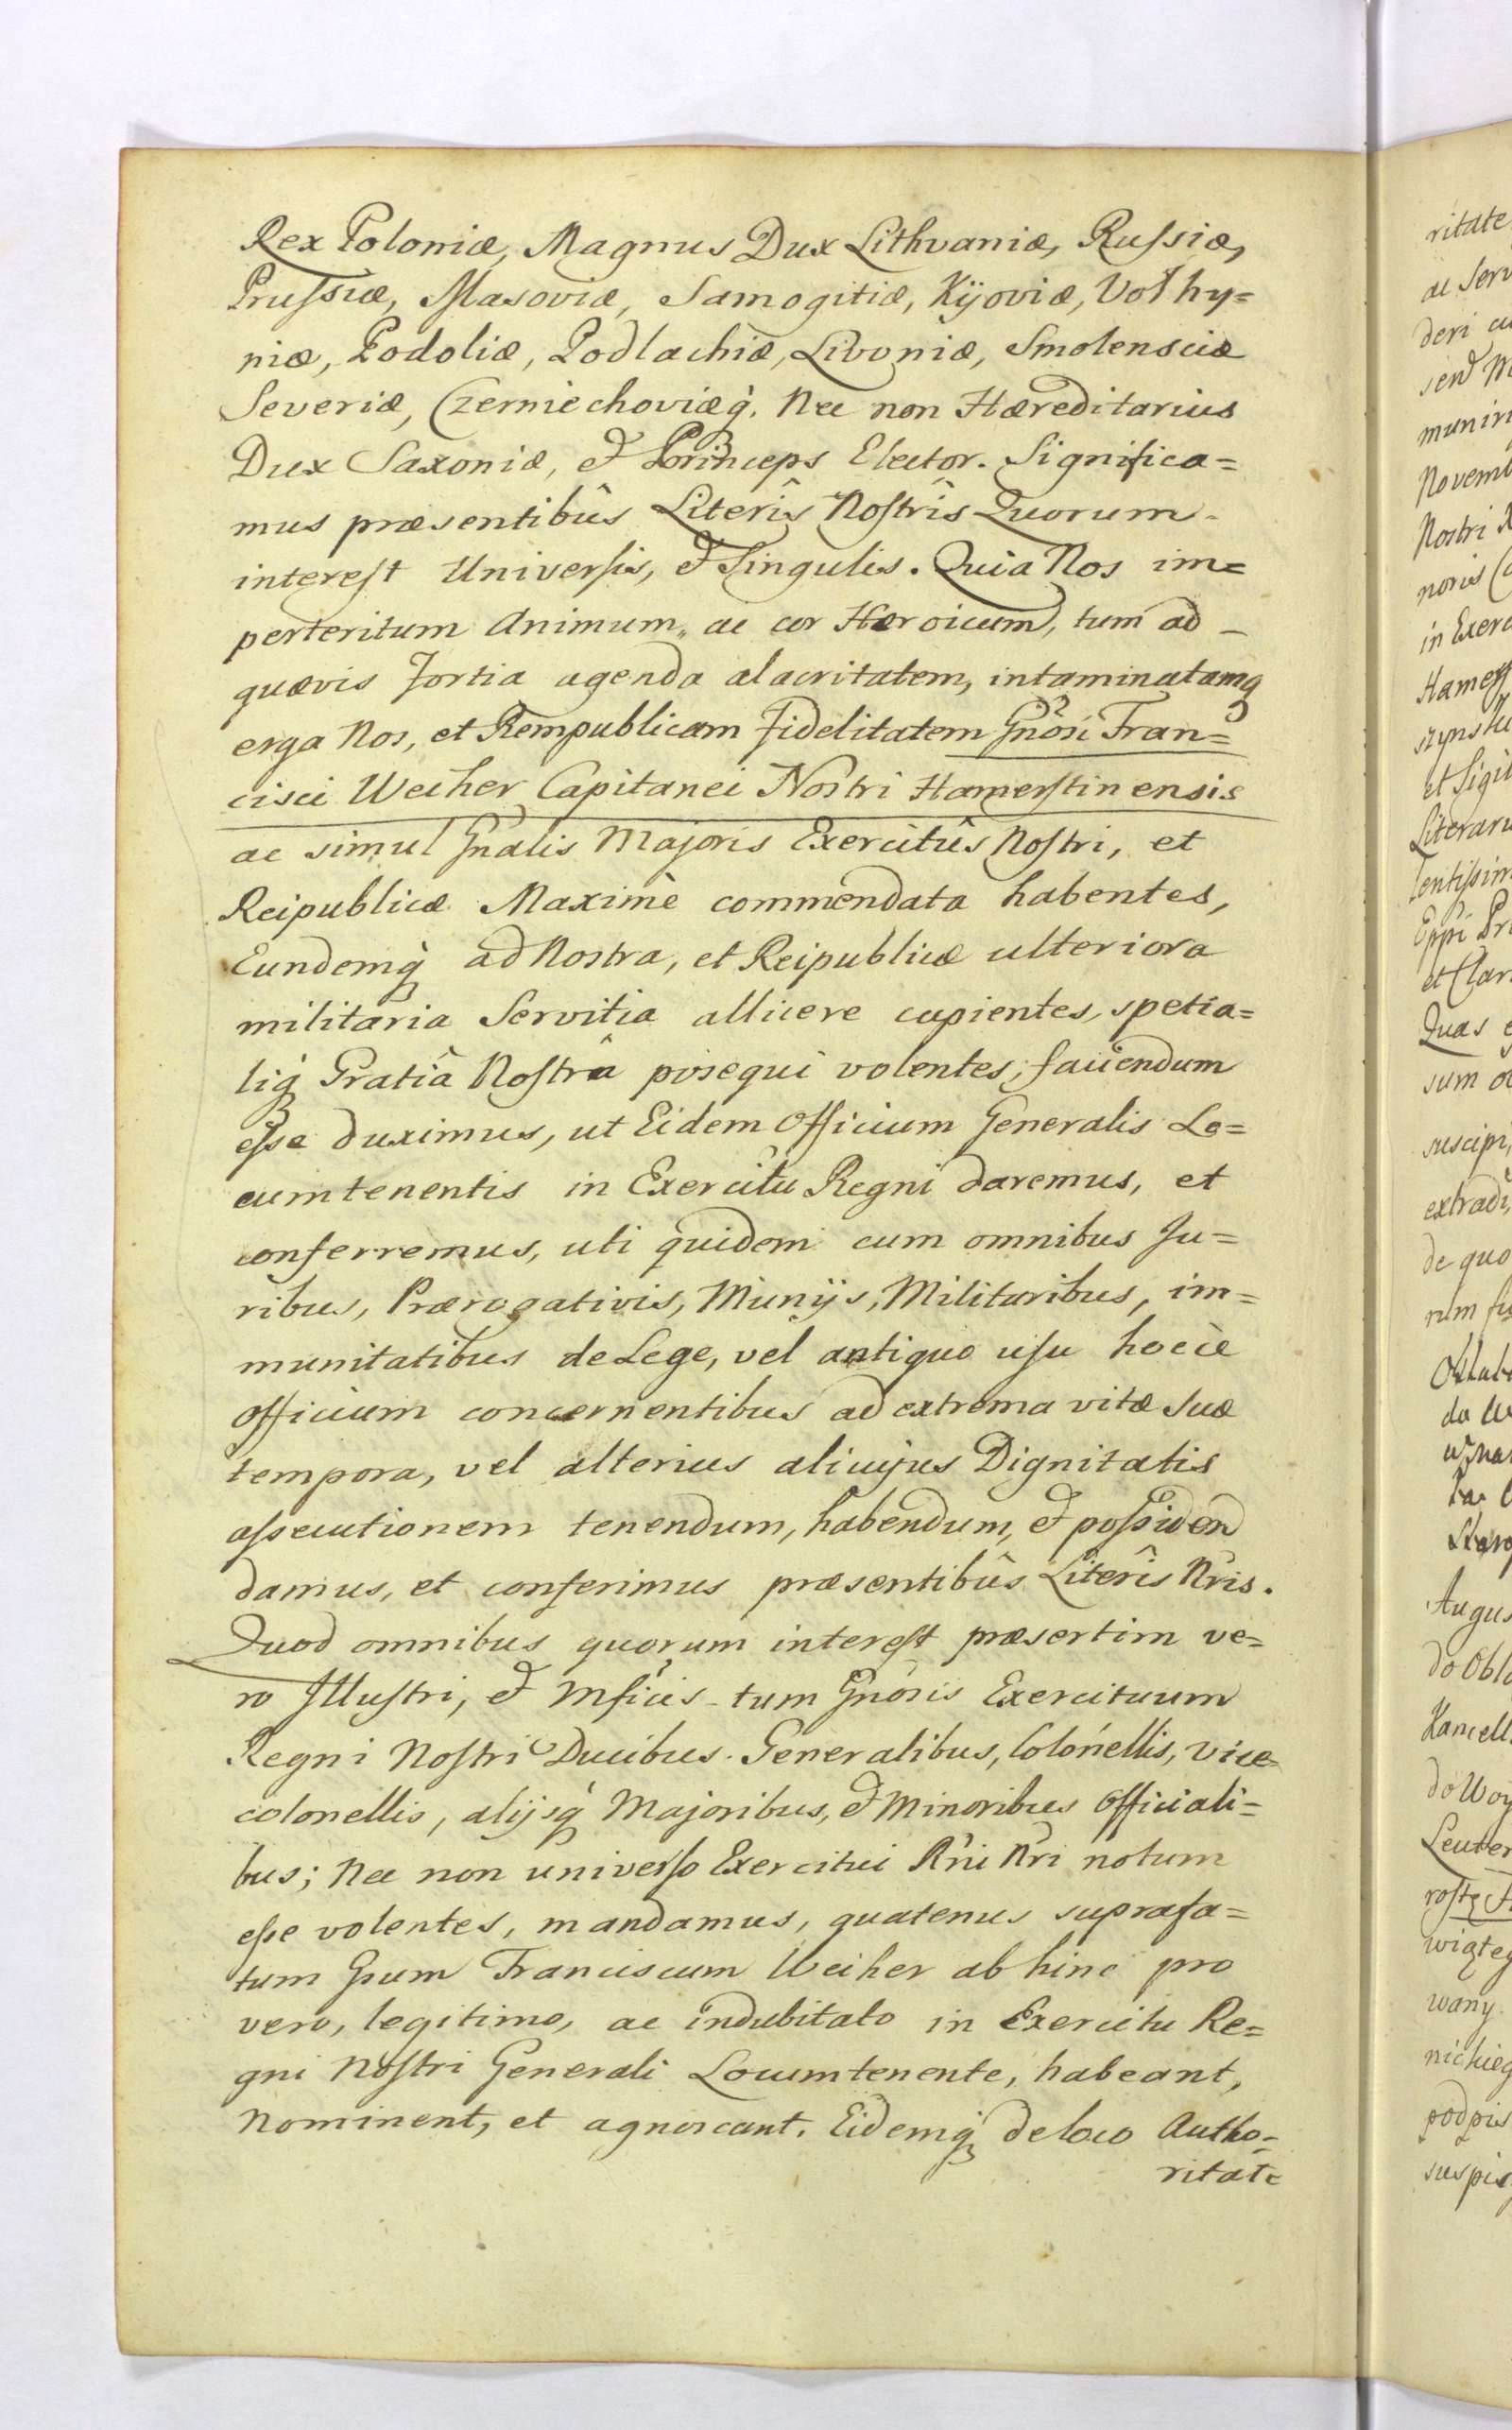 Rex Poloniæ, Magnus Dux Lithvaniæ, Rufsiæ,
Prufsiæ, Masoviæ, Samogitiæ, Kijoviæ, Volhy=
niæ, Podoliæ, Podlachiæ, Livoniæ, Smolensciæ
Severiæ, Czerniechoviæq̀. Nec non Hæreditarius
Dux Saxoniæ, & Princeps Elector. Significa=
mus præsentibûs Literîs Noſtrîs Quorum
intereſt Univerſis, & Singulis. Quia Nos im=
perteritum Animum, ac cor Hæroicum, tum ad
quævis fortia agenda alacritatem, intaminatamq
erga Nos, et Rempublicam fidelitatem Gnõsi Fran=
cisci Weiher Capitanei Nostri Hamerſtinensis
ac simul Gnãlis Majoris Exercitûs Noſtri, et
Reipublicæ Maximè commendata habentes,
Eundemq̀ ad Nostra, et Reipublicæ ulteriora
militaria Servitia allicere cupientes, spetia=
liq̀ Gratiâ Noſtrâ prosequi volentes, faciendum
eſse duximus, ut Eidem Officium Generalis Lo=
cumtenentis in Exercitu Regni daremus, et
conferremus, uti quidem cum omnibus Ju=
ribus, Prærogativis, Munijs, Militaribus, im=
munitatibus de Lege, vel antiquo uſu hocce
Officium concernentibus ad extrema vitæ suæ
tempora, vel alterius alicujus Dignitatis
aſsecutionem tenendum, habendum, & poſsidend
damus, et conferimus præsentibûs Literîs Nris.
Quod omnibus quorum intereſt præsertim ve=
ro Illuſtri, & Mficis tum Gnõsis Exercituum
Regni Noſtri Ducibus. Generalibus, Colonellis, Vice
colonellis, alijsq̀ Majoribus, & Minoribus Officiali=
bus; Nec non univerſo Exercitui Rni Nri notum
eſse volentes, mandamus, quatenus suprafa=
tum Gsum Franciscum Weiher ab hinc pro
vero, legitimo, ac indubitato in Exercitu Re=
gni Noſtri Generali Locumtenente, habeant,
Nominent, et agnoscant. Eidemq̀ de loco Autho=
ritate
ritate
ac Serv
deri cu
send M
muniri
Novemb
Nostri R
noris
in Exerc
Hamerſt
szynski
et Sigil
Literaru
lentiſsim
Eppi Pr
et Clar
Quas e
sum o
suscipi
extradi
de quo
rum
Oblat
da
Augus
do Obla
Kancell
do Woy
Leuten
roſtę
wiąteg
wany
nichieg
podpis
suspi